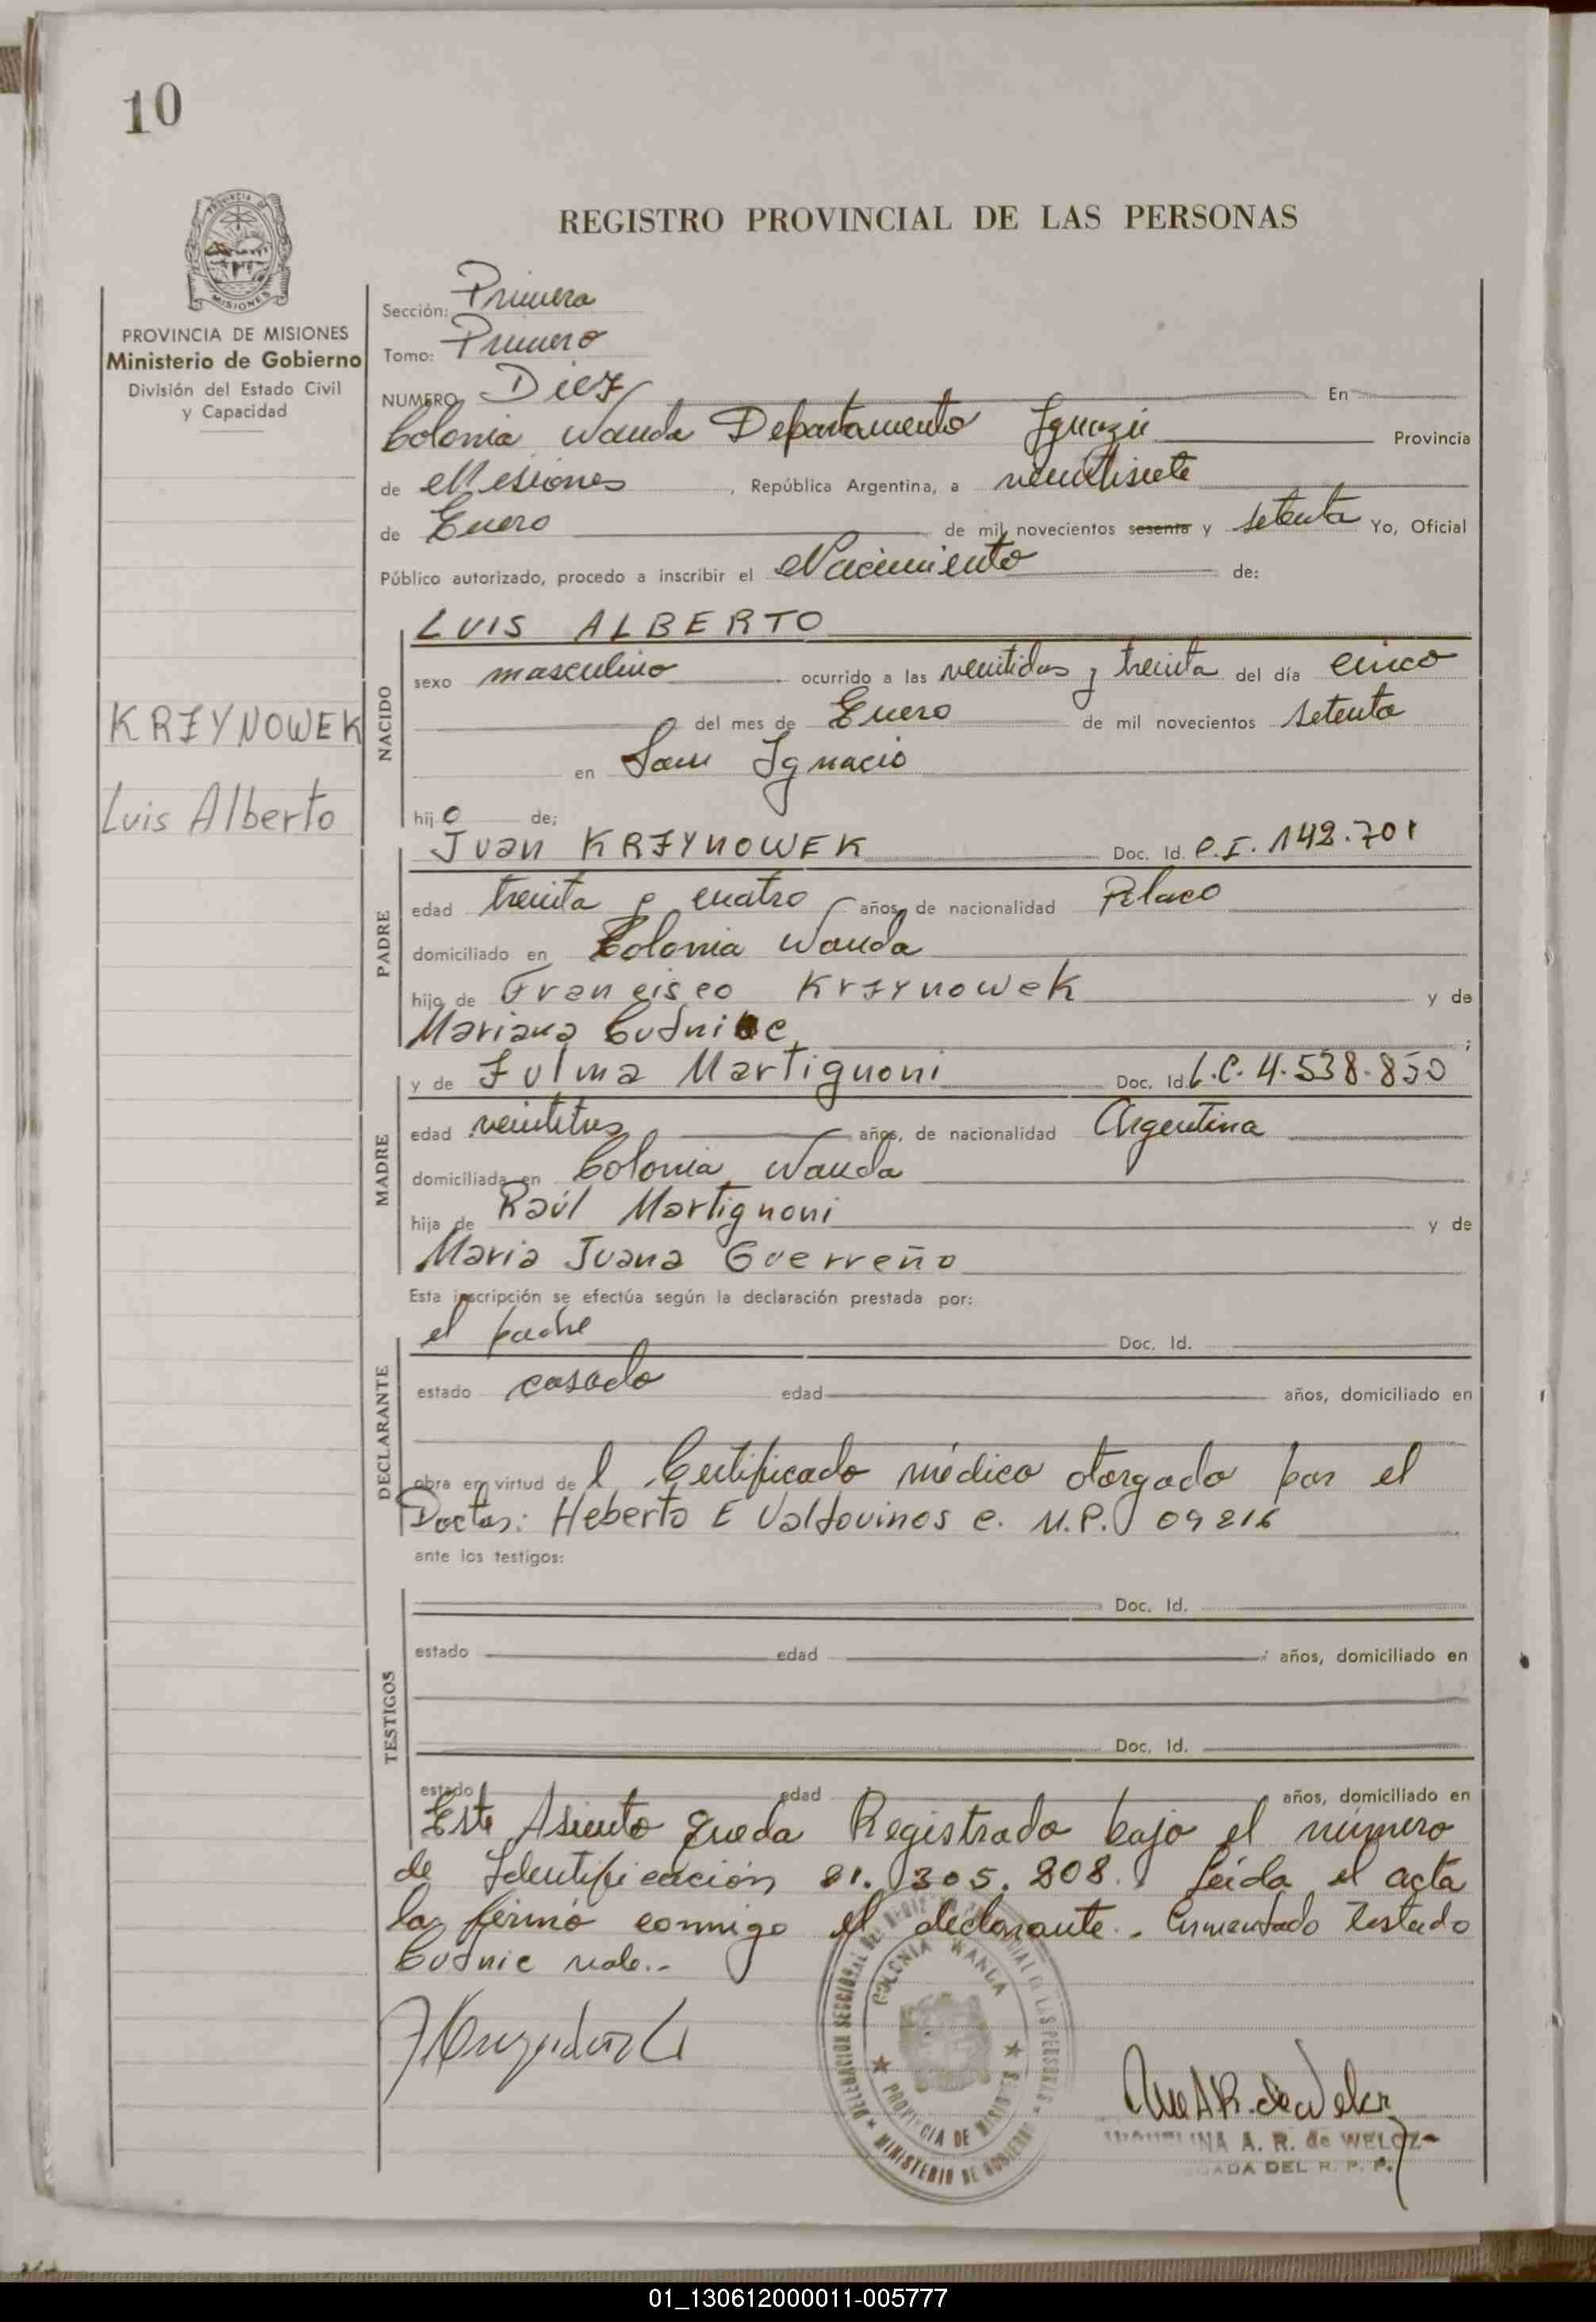 10
REGISTRO PROVINCIAL DE LAS PERSONAS
MISIONES
PROVINCIA DE MISIONES
Ministerio de Gobierno
División del Estado Civil
y Capacidad
KRZYNOWEK
Luis Alberto
Sección: Primera
Tomo: Primero
NUMERO Diez En
Colonia Wanda Departamento Iguazú Provincia
de Misiones, República Argentina, a veintisiete
de Enero de mil novecientos sesenta y setenta Yo, Oficial
Público autorizado, procedo a inscribir el Nacimiento de:
NACIDO
LUIS ALBERTO
sexo masculino ocurrido a las veintidos y treinta del día cinco
del mes de Enero de mil novecientos setenta
en San Ignacio
hijo de;
PADRE
Juan KRZYNOWEK Doc. Id. C.I. 142.701
edad treinta y cuatro años, de nacionalidad Polaco
domiciliado en Colonia Wanda
hijo de Francisco Krzynowek y de
Mariana ;
MADRE
y de Zulma Martignoni Doc. Id. L.C. 4.538.850
edad veintitres años, de nacionalidad Argentina
domiciliada en Colonia Wanda
hija de Raúl Martignoni y de
Maria Juana Guerreño
Esta inscripción se efectúa según la declaración prestada por:
DECLARANTE
el padre Doc. Id.
estado casado edad años, domiciliado en
obra en virtud del Certificado médico otorgado por el
Doctor: Heberto E Valdovinos c. M.P. 09216
ante los testigos:
TESTIGOS
Doc. Id.
estado edad años, domiciliado en
Doc. Id.
estado edad años, domiciliado en
Este Asiento queda Registrado bajo el número
de Identificación 21.305.208. Leída el acta
la firmó conmigo el declarante.. Enmendado Testado
vale..
DELEGACION SECCIONAL DEL REGISTRO PROVINCIAL DE LAS PERSONAS
COLONIA WANDA
PROVINCIA DE MISIONES
MINISTERIO DE GOBIERNO
A. R. de WELCZ
DEL R. P. P.
01_130612000011-005777